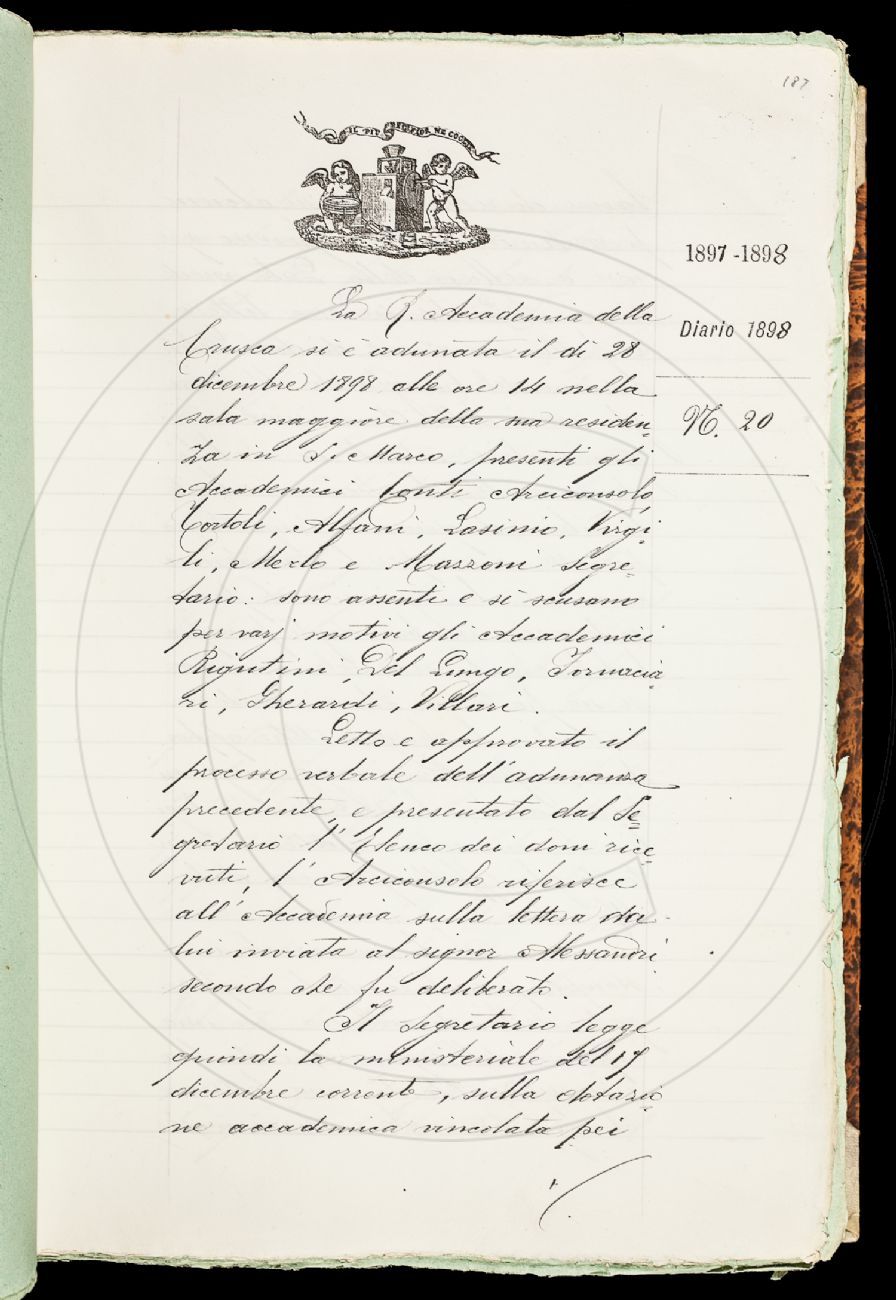 187
IL PIÙ BEL FIOR NE COGLIE
1897-1898
Diario 1898
N. 20
La R. Accademia della
Crusca si è adunata il dì 28
dicembre 1898 alle ore 14 nella
sala maggiore della sua residen=
za in S. Marco, presenti gli
Accademici Conti Arciconsolo,
Tortoli, Alfani, Lasinio, Virgi=
li, Merlo e Mazzoni Segre=
tario: sono assenti e si scusano
per varj motivi gli Accademici
Rigutini, Del Lungo, Fornacia=
ri, Gherardi, Villari.
Letto e approvato il
processo verbale dell'adunanza
precedente, e presentato dal Se=
gretario l'Elenco dei doni rice=
vuti, l'Arciconsolo riferisce
all'Accademia sulla lettera da
lui inviata al signor Alessandri
secondo che fu deliberato.
Il Segretario legge
quindi la ministeriale del 17
dicembre corrente, sulla dotazio=
ne accademica vincolata pei